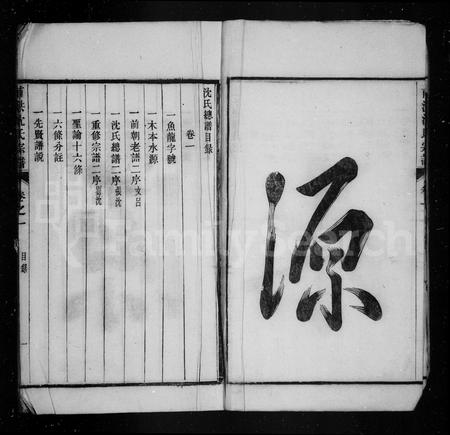 源
沈氏總譜目錄
卷一
一魚龍字號
一木本水源
一前朝老譜二序 文呂
一沈氏總譜二序 張沈
一重修宗譜二序
一聖諭十六條
一六條分註
一先賢譜說
沈氏宗譜
卷之一
目錄
一
FamilySearch